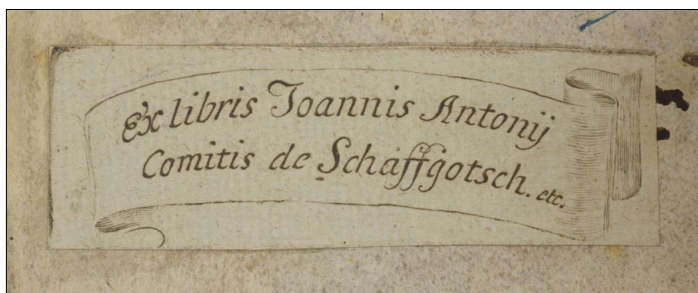 Ex libris Joannis Antonij
Comitis de Schaffgotsch. etc.